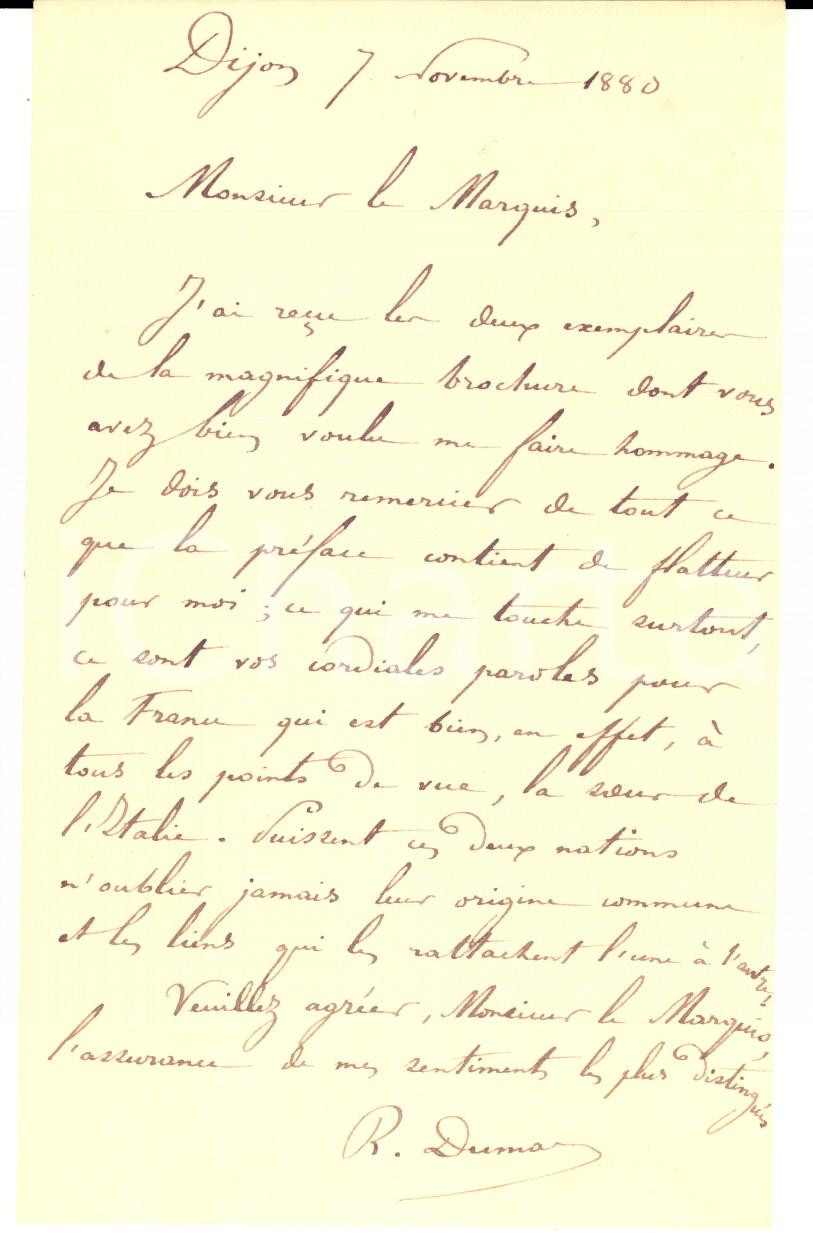 Dijon 7 Novembre 1880
Monsieur le Marquis,
J'ai reçu les deux exemplaires
de la magnifique brochure dont vous
avez bien voulu me faire hommage.
Je dois vous remercier de tout ce
que la préface contient de flatteur
pour moi ; ce qui me touche surtout,
ce sont vos cordiales paroles pour
la France qui est bien, en effet, à
tous les points de vue, la sœur de
l'Italie. Puissent ces deux nations
n'oublier jamais leur origine commune
et les liens qui les rattachent l'une à l'autre!
Veuillez agréer, Monsieur le Marquis,
l'assurance de mes sentiments les plus distingués
R. Dumas